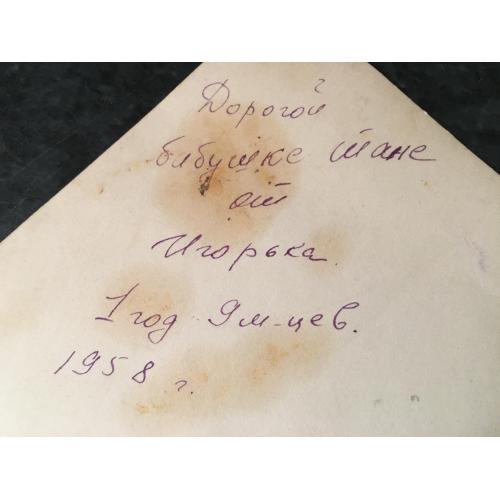 Дорогой
бабушке Тане
от
Игорька.
1 год 9 м-цев.
1958 г.